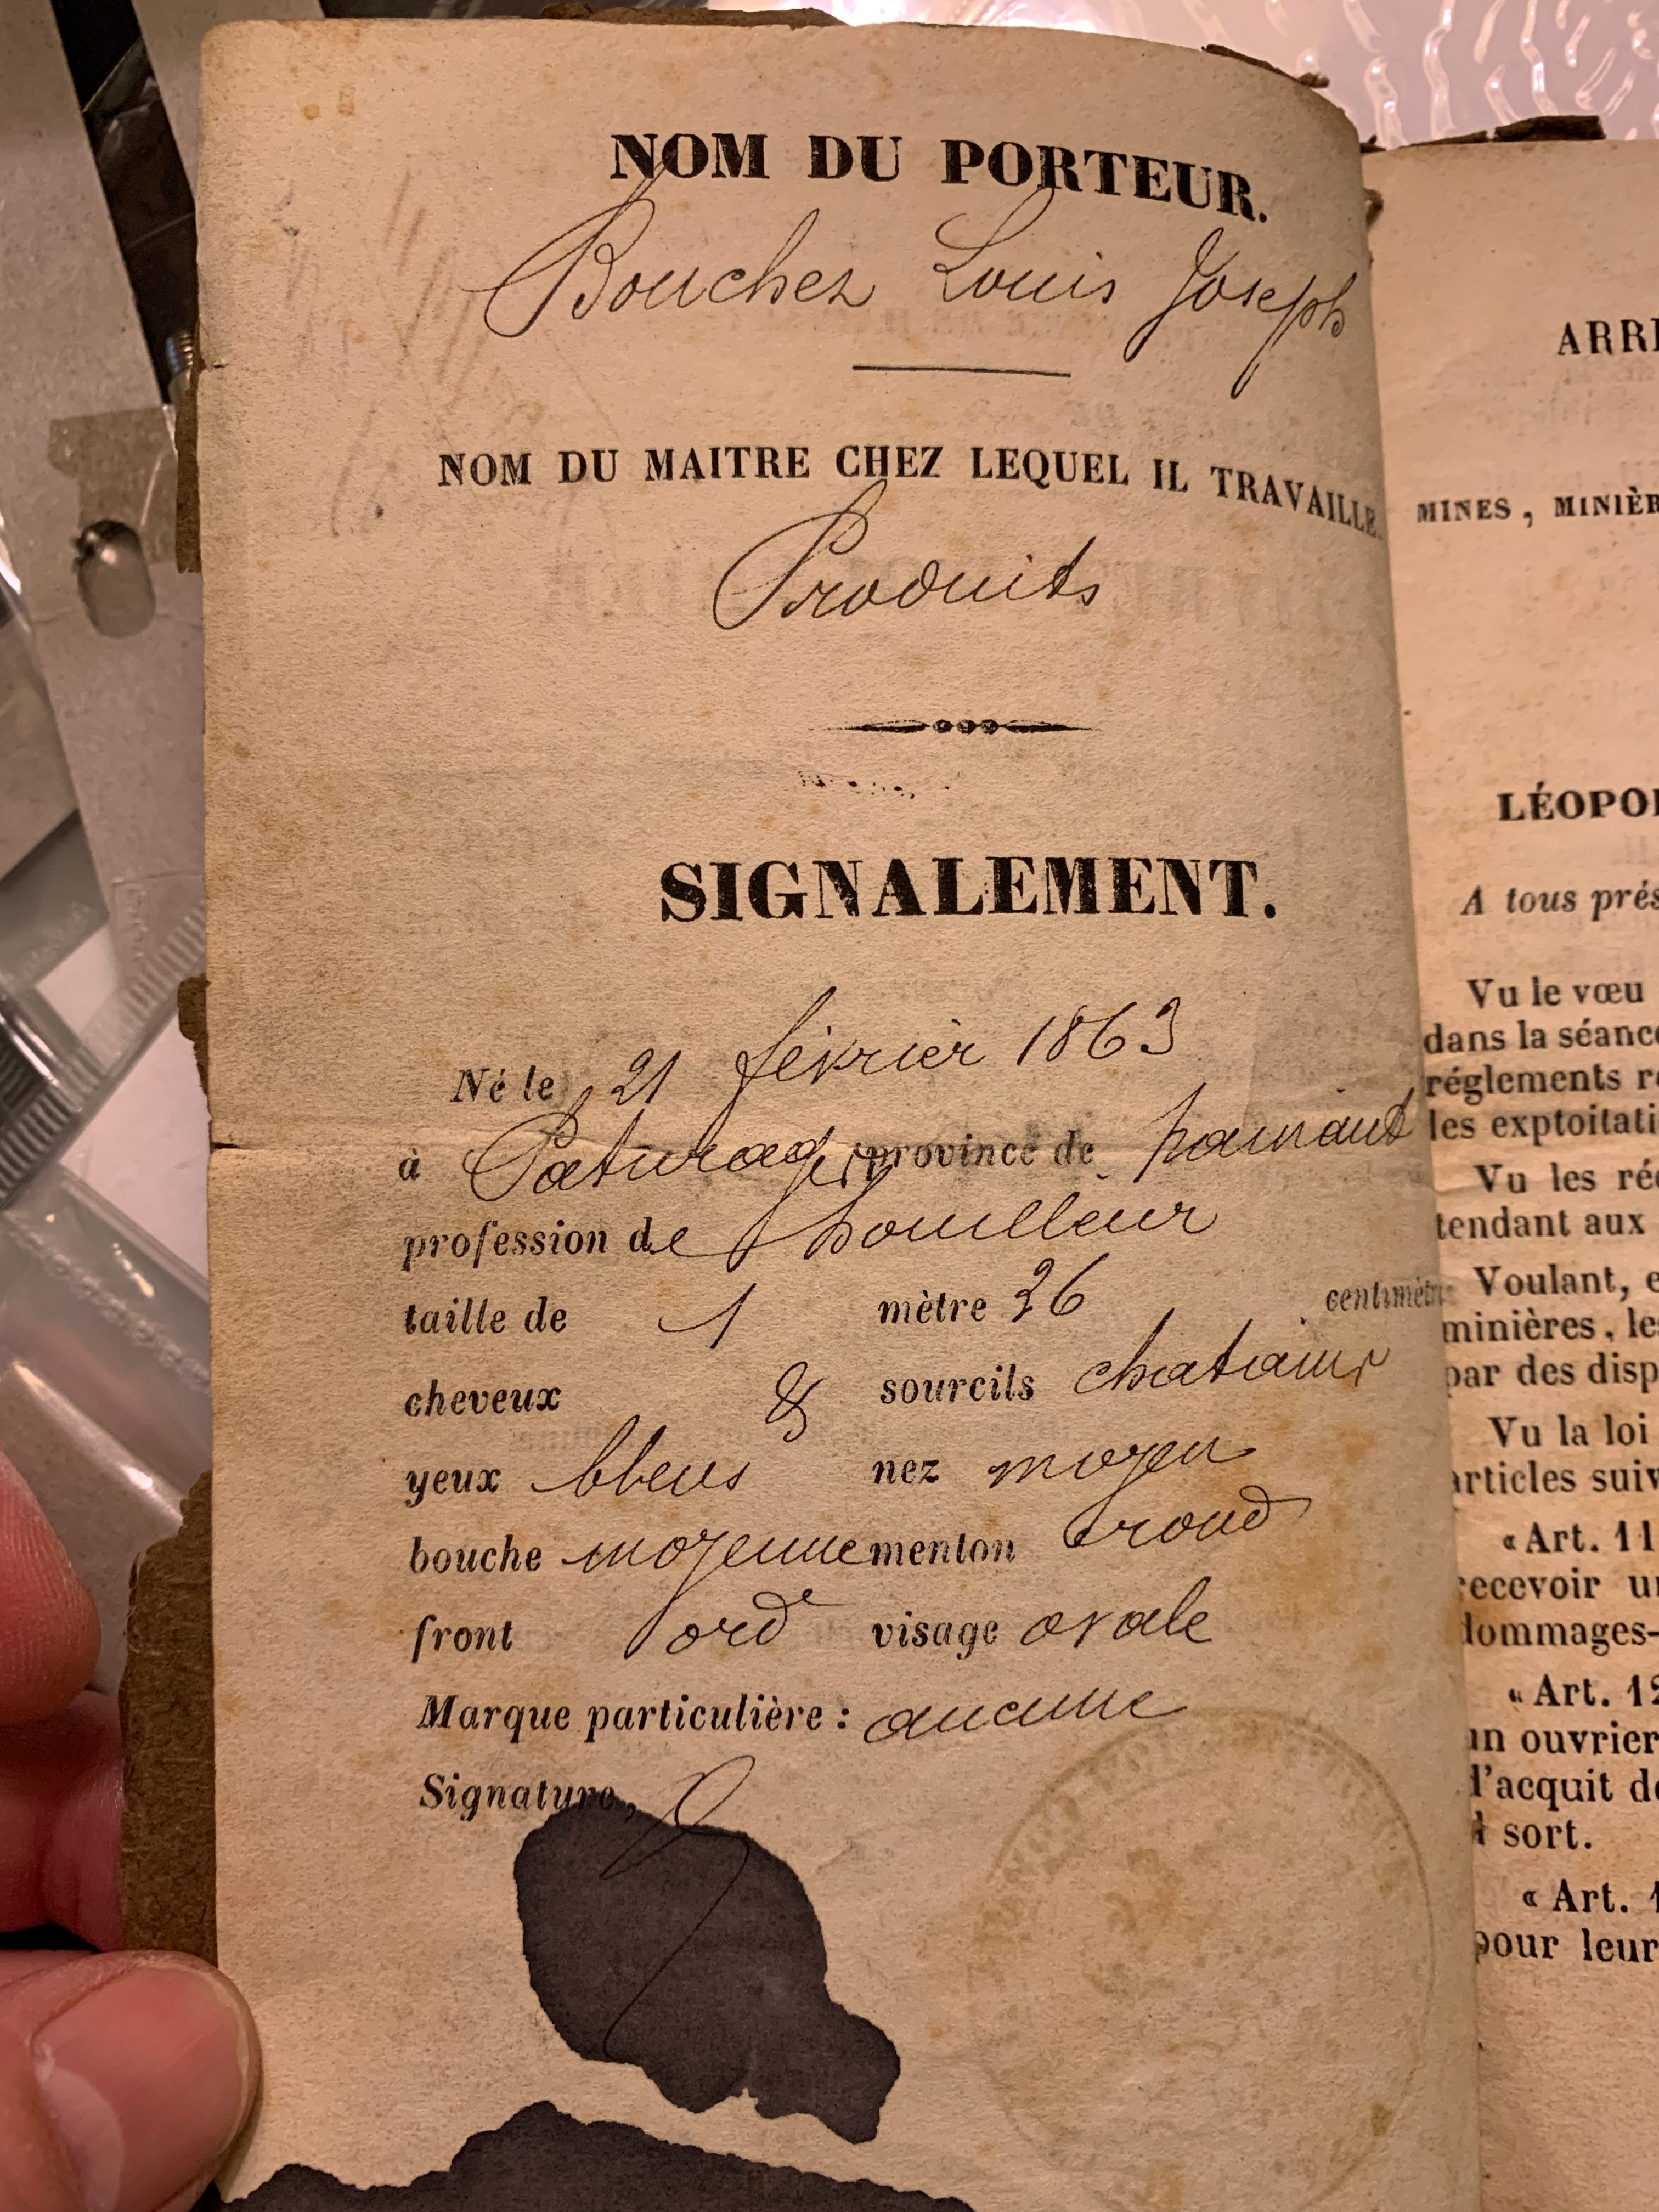 NOM DU PORTEUR.
Bouchez Louis Joseph
NOM DU MAITRE CHEZ LEQUEL IL TRAVAILLE.
Produits
SIGNALEMENT.
Né le 21 février 1863
à Paturages province de hainaut
profession de houilleur
taille de 1 mètre 26 centimètr
cheveux & sourcils chatains
yeux bleus nez moyen
bouche moyenne menton rond
front ord visage ovale
Marque particulière : aucune
Signature,
ARR
MINES, MINIÈR
LÉOPO
A tous prés
Vu le vœu
dans la séance
réglements r
les exptoitati
Vu les ré
tendant aux
Voulant, e
minières, le
par des disp
Vu la loi
articles suiv
« Art. 11
recevoir u
dommages-
« Art. 12
un ouvrier
l'acquit d
sort.
« Art. 1
pour leur